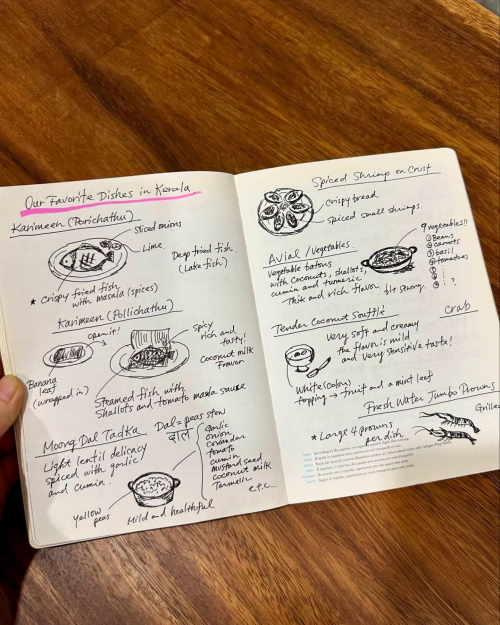 Our Favorite Dishes in Kerala
Karimeen (Porichathu)
Sliced onions
Lime
Deep fried fish.
(Lake fish)
* crispy fried fish
with masala (spices)
Karimeen (Pollichathu)
open it!
spicy
rich and
tasty!
Coconut milk
flavor
Banana
leaf
(wrapped in)
Steamed fish with
shallots and tomato masala sause
Moong Dal Tadka
Dal = peas stew
दाल
Light lentil delicacy
spiced with garlic
and cumin.
Garlic
onion
Coriander
tomato
cumin
mustard seed
coconut milk
Turmeric
e.t.c...
yellow
peas
Mild and healthful
Spiced Shrimp on Crust
crispy bread
spiced small shrimps.
Avial / Vegetables
vegetable batons
with coconuts, shallots,
cumin and turmeric
Thik and rich flavor
9 vegetables!!
① Beans
② carrots
③ basil
④ tomatoes
?
Tender Coconut Soufflé
Crab
very soft and creamy
the flavor is mild
and very sensitive taste!
White (color)
topping → fruit and a mint leaf
Fresh Water Jumbo Prowns
Grilled
* Large 4 prowns
per dish